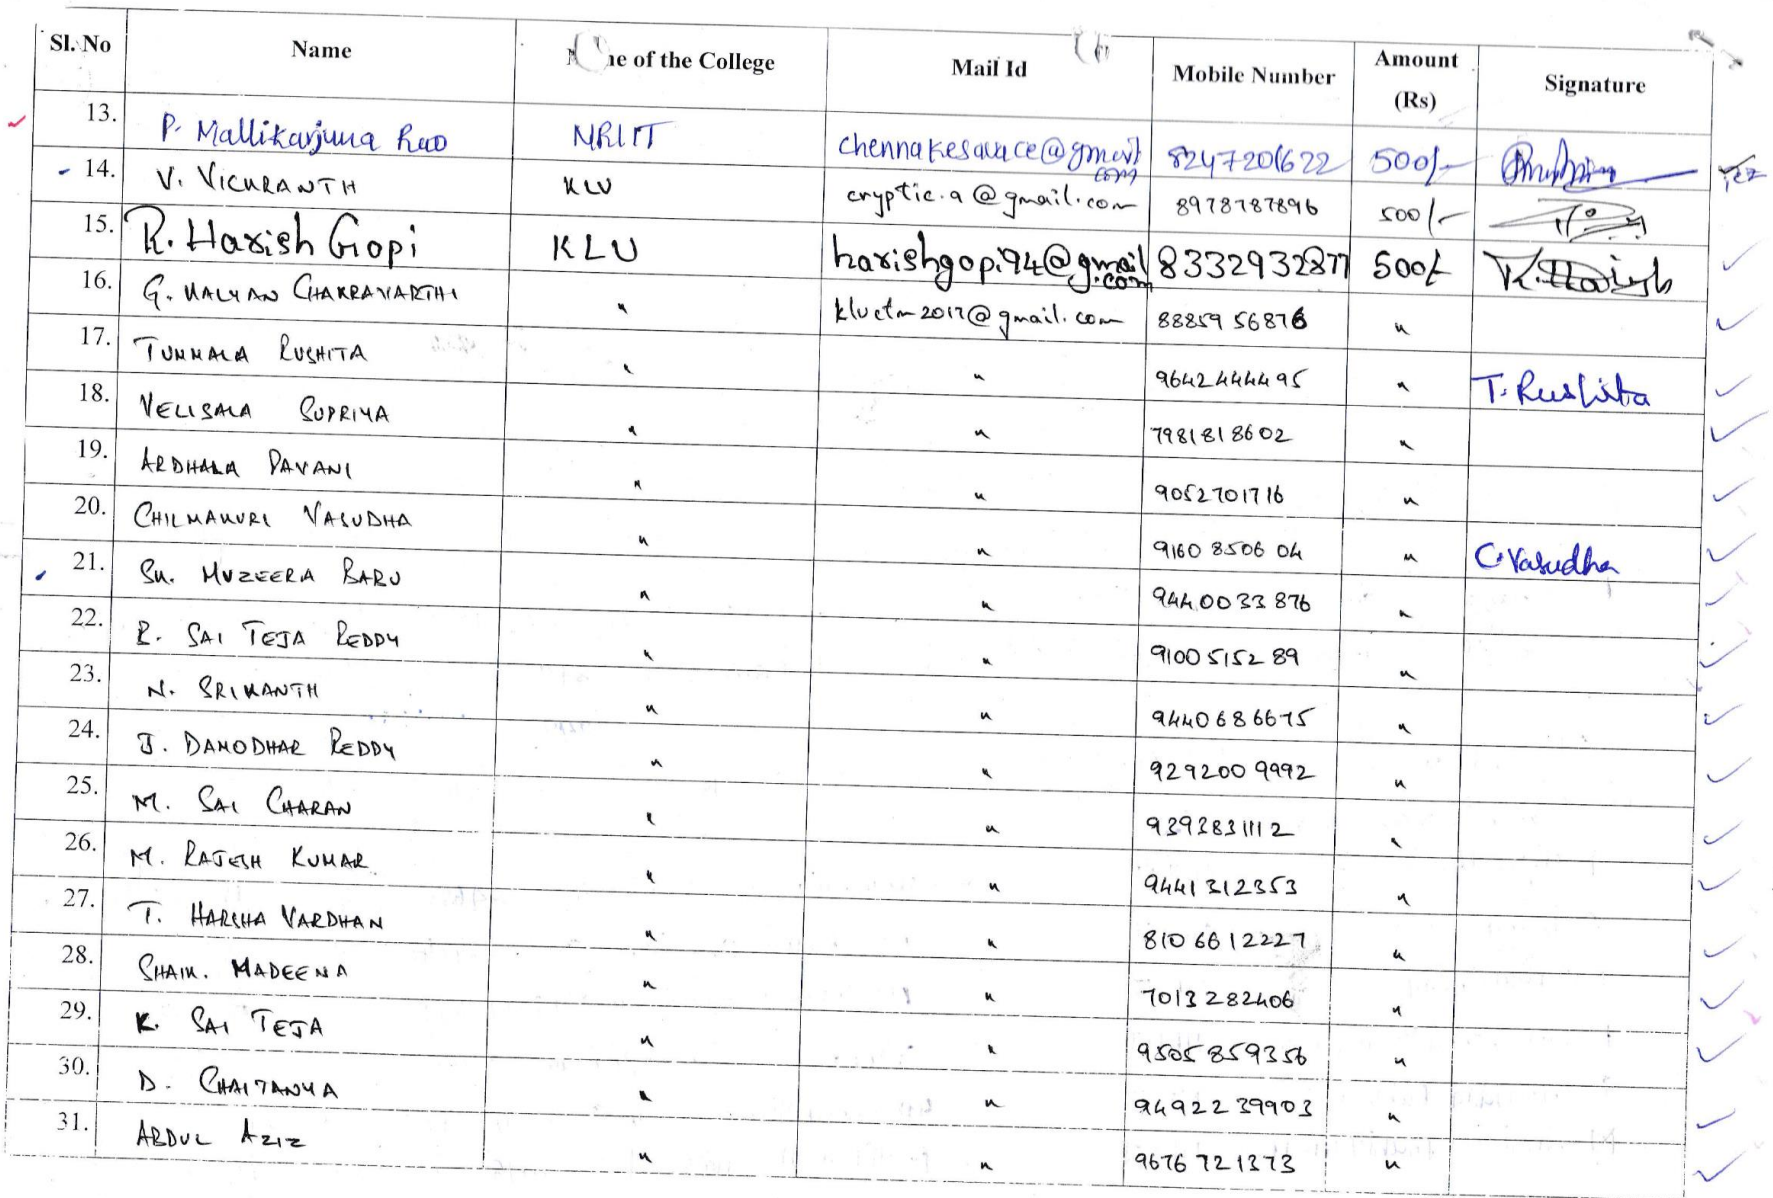 Sl. No Name Name of the College Mail Id Mobile Number Amount (Rs) Signature
13. P. Mallikarjuna Rao NRIIT chennakesavace@gmail.com 8247201622 500/-
14. V. VICKRANTH KLU cryptic.a@gmail.com 8978787896 500/-
15. R. Harish Gopi KLU harishgopi94@gmail.com 8332932877 500/- R. Harish
16. G. KALYAN CHAKRAVARTHI " kluctm2017@gmail.com 88859 56876 "
17. TUMMALA RUSHITA " " 9642444495 " T. Rushita
18. VELISALA SUPRIYA " " 7981818602 "
19. ARDHALA PAVANI " " 9052701716 "
20. CHILMAKURI VASUDHA " " 9160 8506 04 " C. Vasudha
21. SK. MUZEERA BABU " " 9440033876 "
22. R. SAI TEJA REDDY " " 9100515289 "
23. N. SRIKANTH " " 9440686675 "
24. J. DAMODHAR REDDY " " 929200 9992 "
25. M. SAI CHARAN " " 9393831112 "
26. M. RAJESH KUMAR " " 9441312353 "
27. T. HARSHA VARDHAN " " 8106612227 "
28. SHAIK. MADEENA " " 7013282406 "
29. K. SAI TEJA " " 9505859356 "
30. D. CHAITANYA " " 9492239903 "
31. ABDUL AZIZ " " 9676721373 "